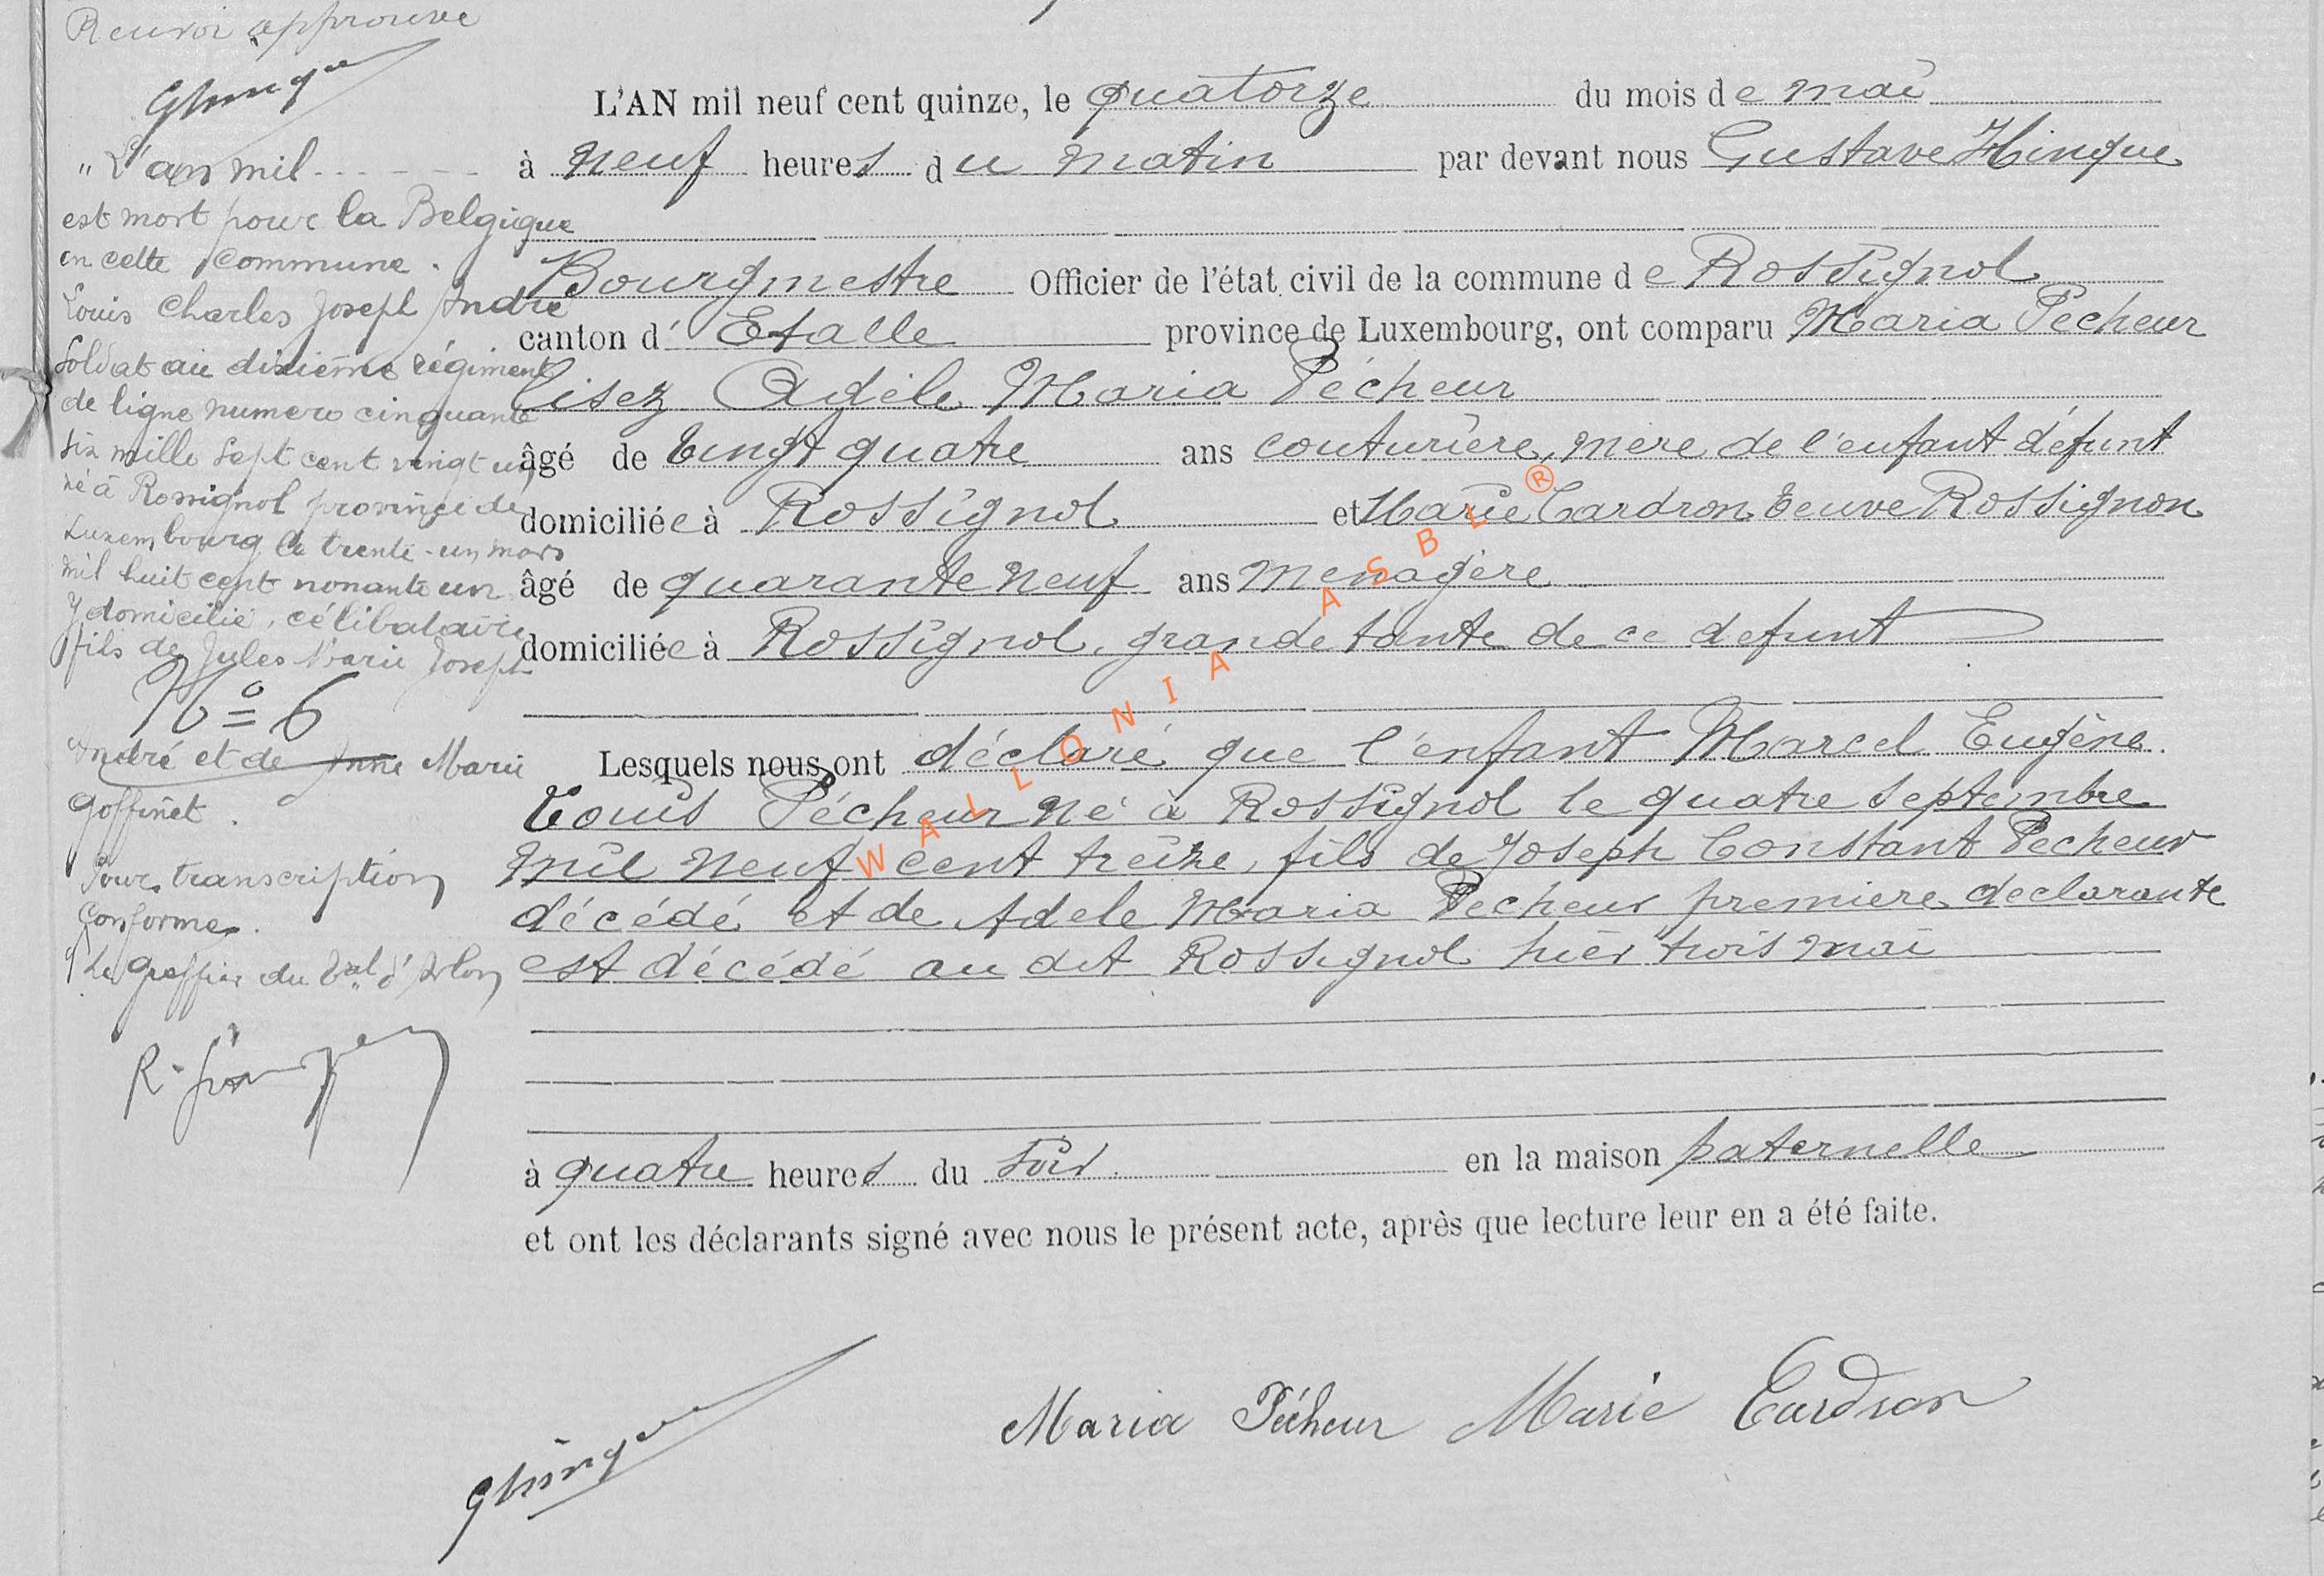 Renvoi approuvé
GHinque
"L'an mil - - - - -
est mort pour la Belgique
en cette commune.
Louis Charles Joseph André
soldat au dixième régiment
de ligne numero cinquante
six mille sept cent vingt un,
né à Rossignol province de
Luxembourg le trente-un mars
mil huit cent nonante un
y domicilié, célibataire
fils de Jules Marie Joseph
N° 6
André et de Anne Marie
Goffinet.
Pour transcription
conforme.
Le Greffier du Tal d'Arlon
L'AN mil neuf cent quinze, le quatorze du mois de mai
à neuf heures du matin par devant nous Gustave Hinque
Bourgmestre Officier de l'état civil de la commune de Rossignol
canton d'Etalle province de Luxembourg, ont comparu Maria Pécheur
lisez Adèle Maria Pécheur
âgé de vingt quatre ans couturière, mère de l'enfant défunt
domiciliée à Rossignol et Marie Cardron veuve Rossignon
âgé de quarante neuf ans menagère
domiciliée à Rossignol, grande tante de ce defunt
Lesquels nous ont déclaré que l'enfant Marcel Eugène
Louis Pécheur né à Rossignol le quatre septembre
mil neuf cent treize, fils de Joseph Constant Pecheur
décédé et de Adele Maria Pecheur premiere declarante
est décédé au dit Rossignol hier trois mai
à quatre heures du soir en la maison paternelle
et ont les déclarants signé avec nous le présent acte, après que lecture leur en a été faite.
GHinque
Maria Pécheur Marie Cardron
WALLONIA ASBL ®